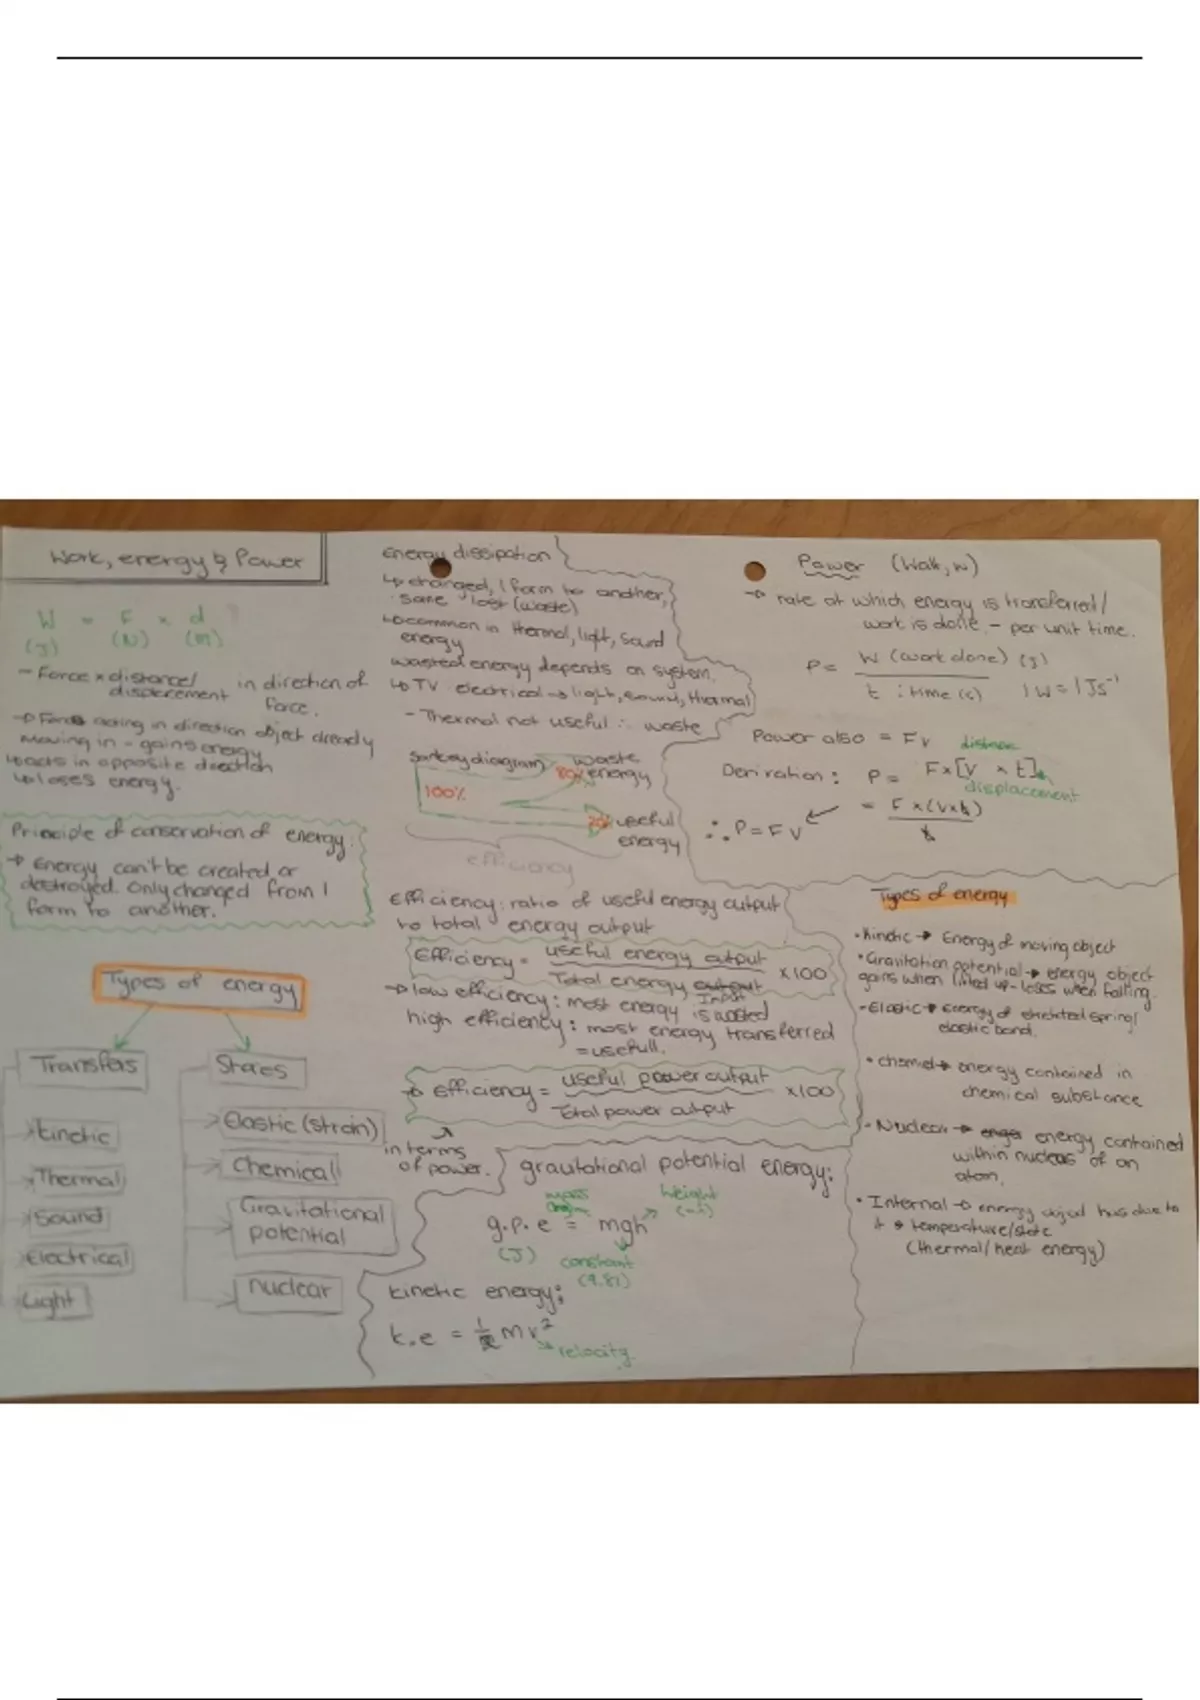 Work, energy & Power
W = F x d
(J) (N) (m)
- Force x distance/
displacement in direction of
force.
→ Force acting in direction object already
moving in - gains energy
↳ acts in opposite direction
↳ loses energy.
Principle of conservation of energy:
→ Energy can't be created or
destroyed. Only changed from 1
form to another.
Types of energy
Transfers
Kinetic
Thermal
Sound
Electrical
Light
Stores
Elastic (strain)
Chemical
Gravitational
potential
nuclear
Energy dissipation
↳ changed, 1 form to another,
some lost (waste)
↳ common in thermal, light, sound
energy
wasted energy depends on system.
↳ TV electrical → light, sound, thermal
- Thermal not useful ∴ waste
Sankey diagram
waste
80% energy
100%
20% useful
energy
efficiency
Efficiency: ratio of useful energy output
to total energy output
Efficiency = useful energy output
Total energy output x100
Input
→ low efficiency: most energy is wasted
high efficiency: most energy transferred
= usefull.
→ Efficiency = useful power output x100
Total power output
in terms
of power.
gravitational potential energy:
mass height
g.p.e = mgh
(J) constant
(9.81)
kinetic energy:
k.e = 1/2 mv²
→ velocity
Power (Watt, W)
→ rate at which energy is transferred/
work is done. - per unit time.
P = W (work done) (J)
t : time (s) 1W = 1Js⁻¹
Power also = Fv
distance
Derivation: P = F x [V x t]
displacement
= F x (v x t)
t
∴ P = FV
Types of energy
• Kinetic → Energy of moving object
• Gravitation potential → energy object
gains when lifted up - loses when falling.
• Elastic → Energy of stretched spring/
elastic band.
• chemical → energy contained in
chemical substance
• Nuclear → energy contained
within nucleus of an
atom.
• Internal → energy object has due to
it → temperature/state
(thermal/heat energy)